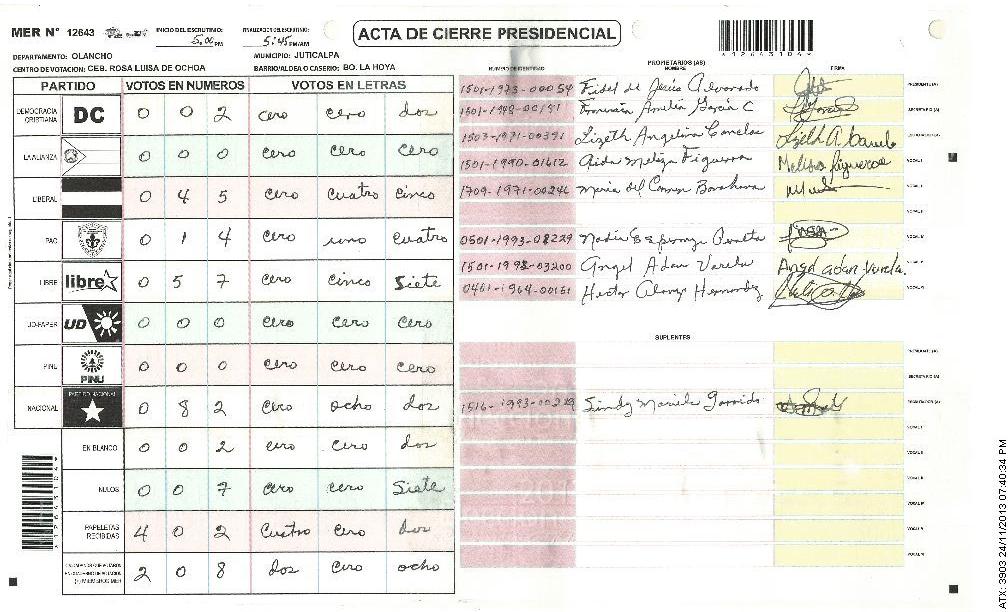 MER N° 12643 INICIO DEL ESCRUTINIO: 5:00 PM FINALIZACION DEL ESCRUTINIO: 5:45 PM/AM ACTA DE CIERRE PRESIDENCIAL
DEPARTAMENTO: OLANCHO MUNICIPIO: JUTICALPA
CENTRO DE VOTACION: CEB. ROSA LUISA DE OCHOA BARRIO/ALDEA O CASERIO: BO. LA HOYA
PARTIDO VOTOS EN NUMEROS VOTOS EN LETRAS
DEMOCRACIA CRISTIANA DC 0 0 2 cero cero dos
LA ALIANZA 0 0 0 cero cero cero
LIBERAL 0 4 5 cero cuatro cinco
PAC 0 1 4 cero uno cuatro
LIBRE libre 0 5 7 cero cinco siete
UD-FAPER UD 0 0 0 cero cero cero
PINU PINU 0 0 0 cero cero cero
NACIONAL PARTIDO NACIONAL 0 8 2 cero ocho dos
EN BLANCO 0 0 2 cero cero dos
NULOS 0 0 7 cero cero siete
PAPELETAS RECIBIDAS 4 0 2 cuatro cero dos
CIUDADANOS QUE VOTARON EN CUADERNO DE VOTACION (+) MIEMBROS MER 2 0 8 dos cero ocho
PROPIETARIOS (AS)
NUMERO DE IDENTIDAD NOMBRE FIRMA
1501-1973-00054 Fidel de Jesús Alvarado PRESIDENTE (A)
García C SECRETARIO (A)
1503-1971-00391 Lizeth Angelina Canelas
1501-1990-01612 Aida Meliza Figueroa Melissa Figueroa
1709-1971-00246 Maria del Carmen
0501-1993-08229 Peralta
1501-1998-03200 Angel Adan Varela Angel adan Varela.
Hector Alonzo Hernandez
SUPLENTES
PRESIDENTE (A)
SECRETARIO (A)
1516-1993-00229 Sindy Mariela Garrido ESCRUTADOR (A)
ATX: 3903 24/11/2013 07:40:34 PM